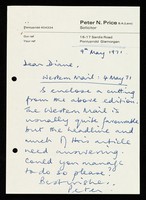 Peter N. Price
Solicitor
9th May 1971
Dear Diane,
Western Mail: 4 May 71
I enclose a cutting
from the above edition.
The Western Mail is
usually quite favourable
but the headline and
much of this article
need answering.
Could you manage
to do so please?
Best wishes.
Peter